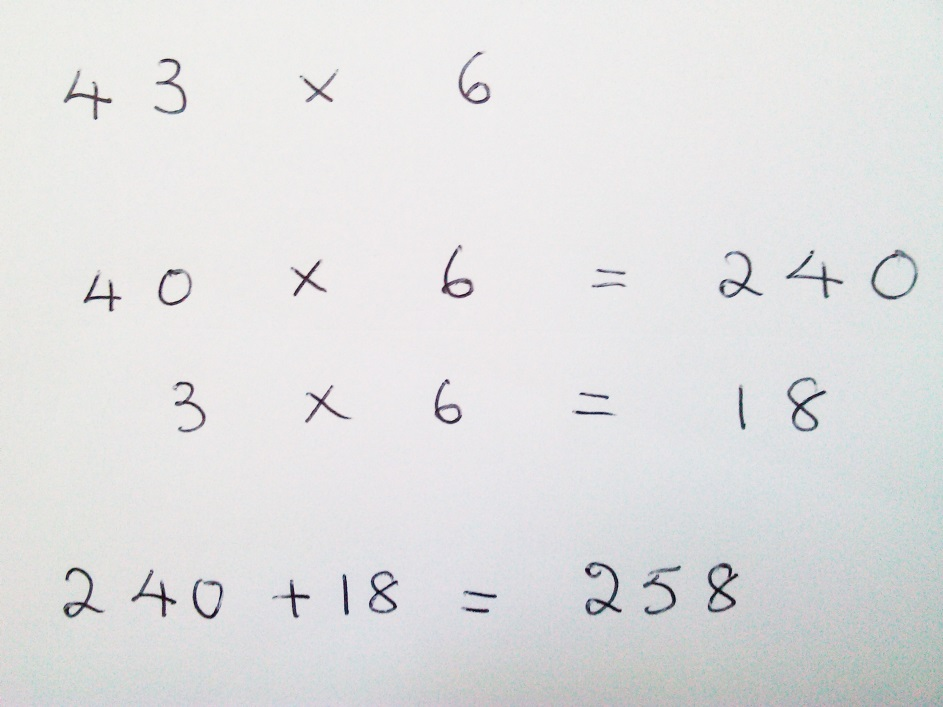 43 × 6
40 × 6 = 240
3 × 6 = 18
240 + 18 = 258